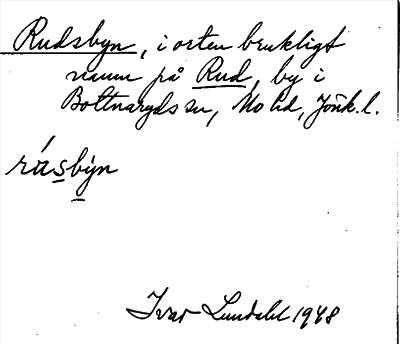 Rudsbyn, i orten brukligt
namn på Rud, by i
Bottnaryds sn, Mo hd, Jönk. l.
rásbýn
Ivar Lundahl 1948